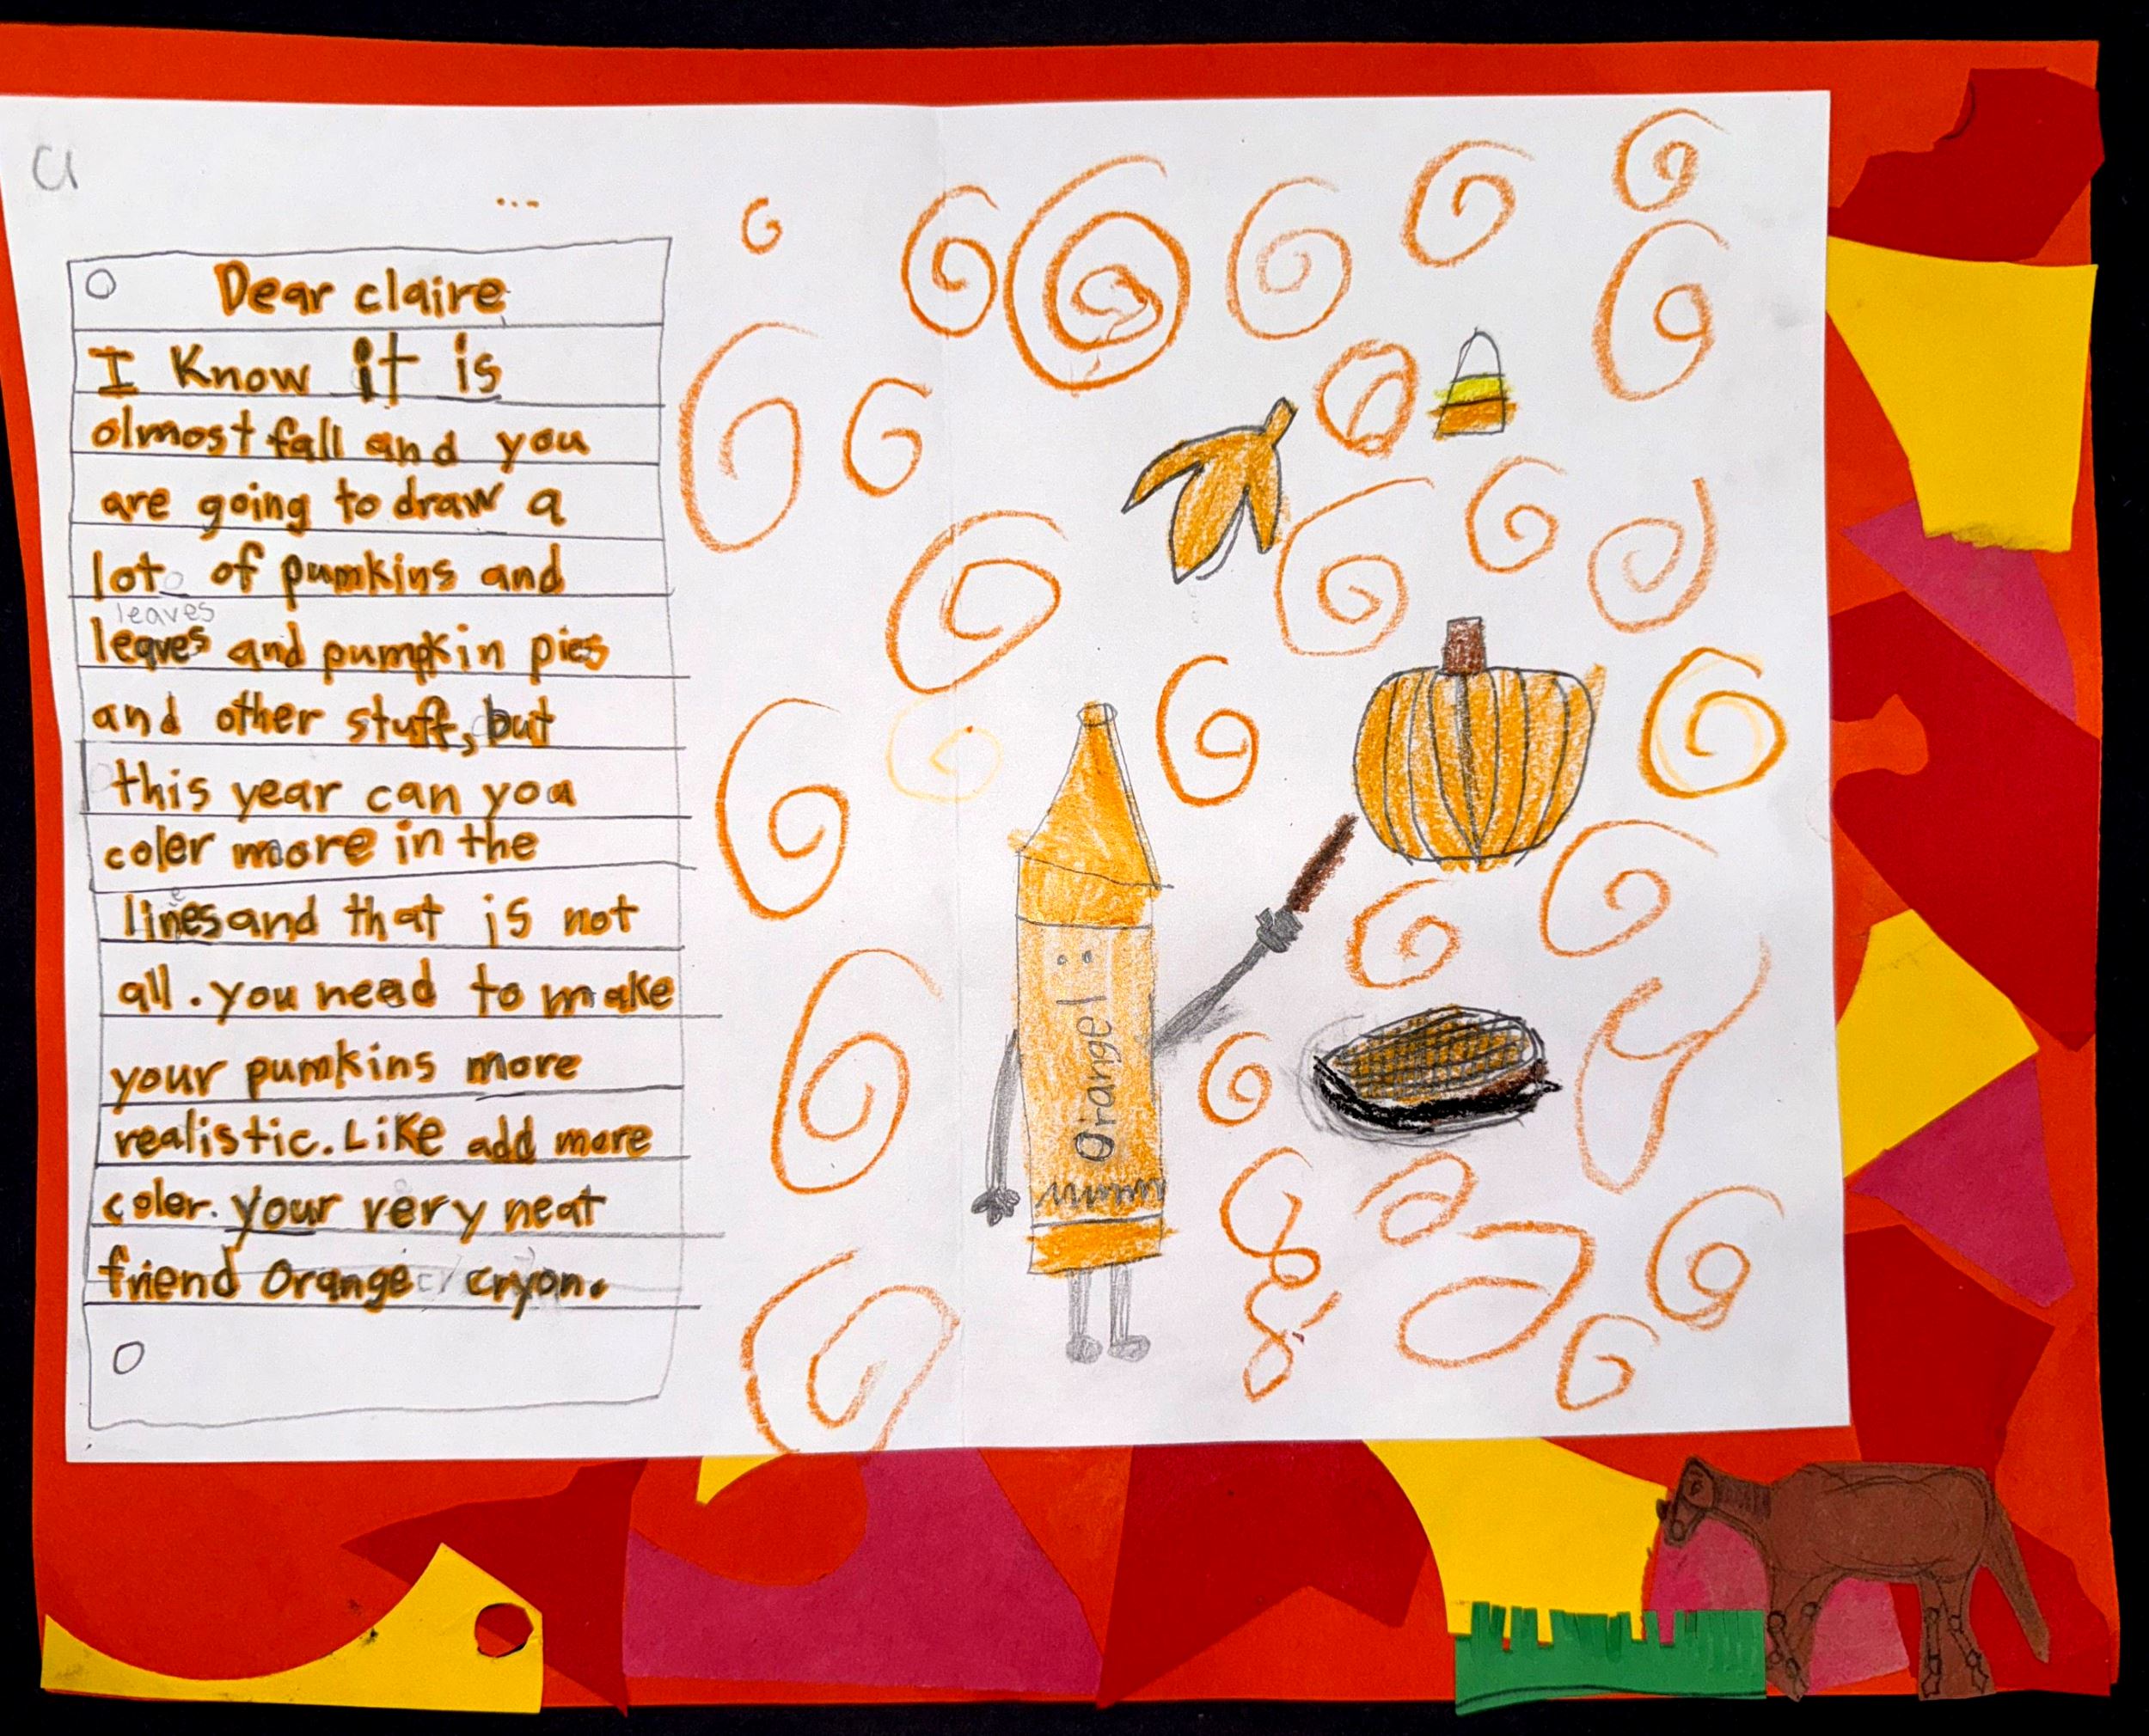 Cl
Dear claire
I Know it is
olmost fall and you
are going to draw a
lot of pumkins and
leaves
leaves and pumpkin pies
and other stuff, but
this year can you
coler more in the
lines and that is not
all. you need to make
your pumkins more
realistic. Like add more
coler. your very neat
friend Orange cryon.
Orange!